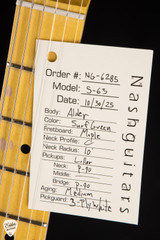 Nashguitars
Order #: NG-6285
Model: S-63
Date: 10/30/25
Body: Alder
Color: Surf Green
Fretboard: Maple
Neck Profile: C
Neck Radius: 10
Pickups: Lollar
Neck: P-90
Middle:
Bridge: P-90
Aging: Medium
Pickguard: 3-Ply White